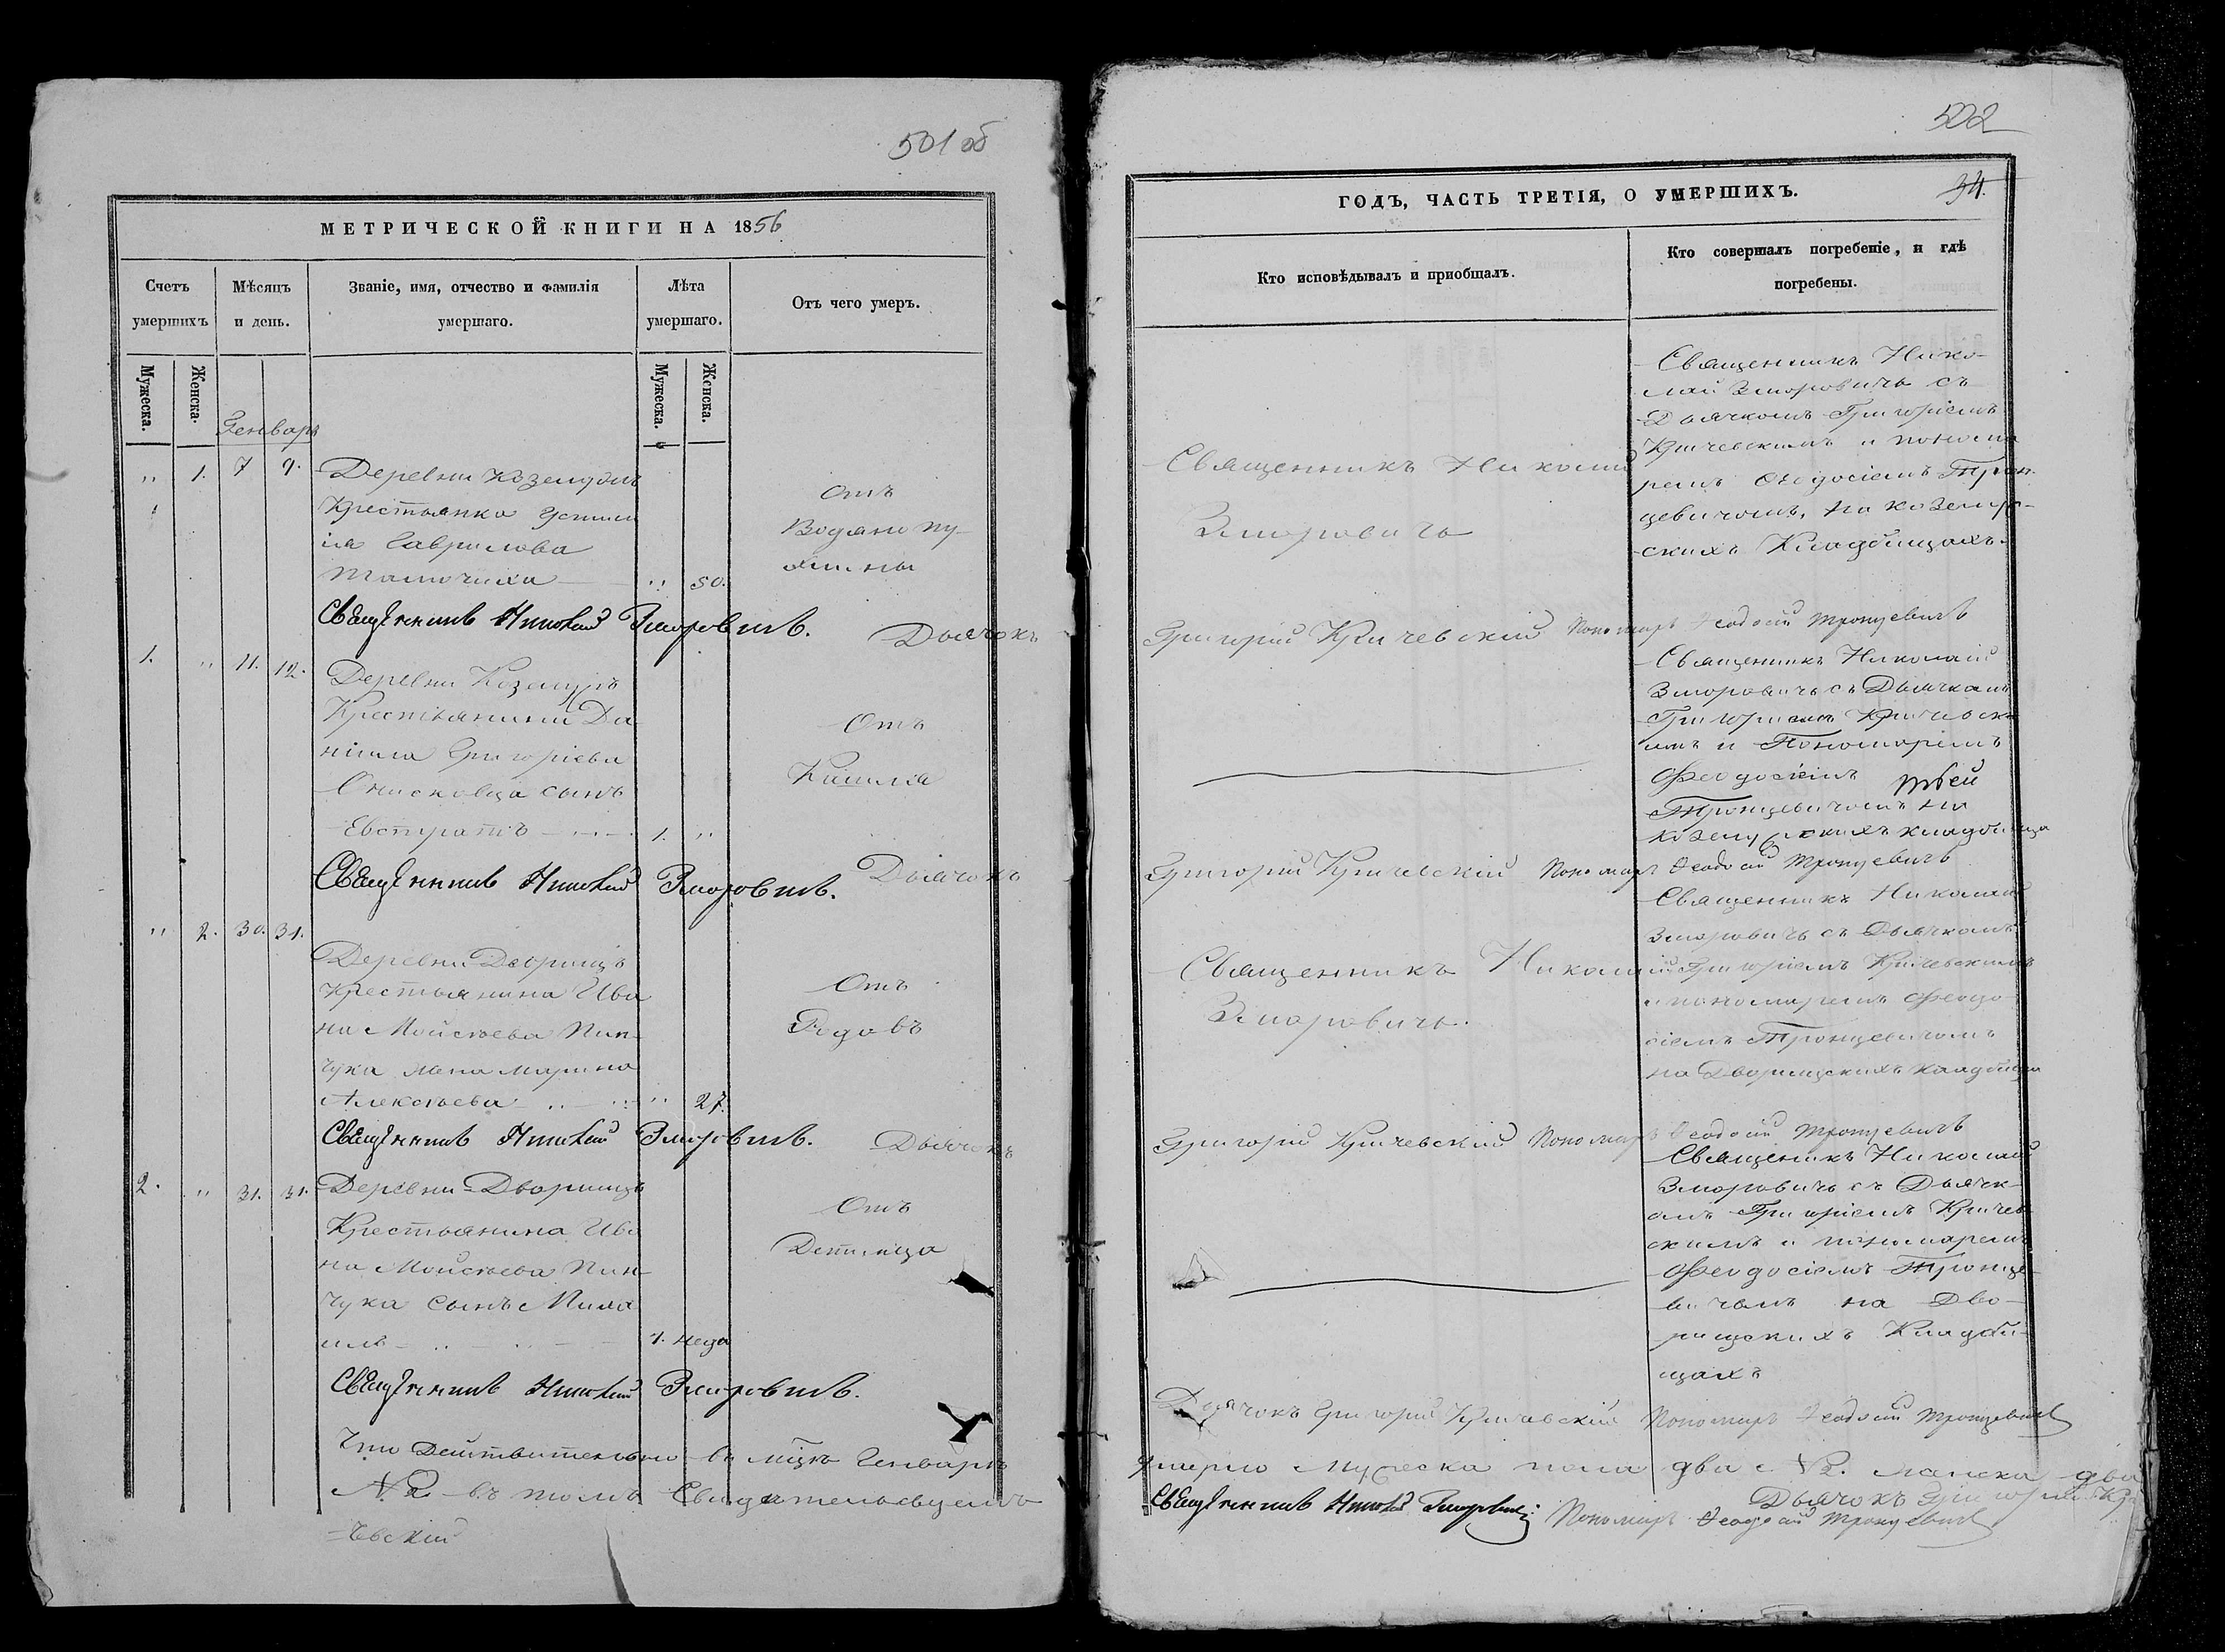 501 об
МЕТРИЧЕСКОЙ КНИГИ НА 1856
Счетъ умершихъ
Мѣсяцъ и день.
Званіе, имя, отчество и фамилія умершаго.
Лѣта умершаго.
Отъ чего умеръ.
Мужеска.
Женска.
Мужеска.
Женска.
Генварь
" 1. 7 9. Деревни
Крестьянка
Гаврилова
" 50.
Отъ
Водяно пу-
хлины
Священникъ Николай Зморовичъ. Дьячокъ
1. " 11. 12. Деревни Коземуръ
Крестьянина Да-
ніила Григоріева
Онисковца сынъ
Евстратъ 1. "
Отъ
Кашля
Священникъ Николай Зморовичъ. Дьячокъ
" 2. 30. 31.
Деревни Дворищъ
Крестьянина Ива
на Мойсѣева Пин-
чука жена Марина
Алексѣева " 27.
Отъ
Родовъ
Священникъ Николай Зморовичъ. Дьячокъ
2. " 31. 31. Деревни Дворищъ
Крестьянина Ива
на Мойсѣева Пин-
чука сынъ Миха
илъ 1. неда
Отъ
Детинца
Священникъ Николай Зморовичъ.
Что Действительно въ мцѣ Генварѣ
№ 2 въ томъ Свидетельсвуемъ
чевскій
502
34.
ГОДЪ, ЧАСТЬ ТРЕТІЯ, О УМЕРШИХЪ.
Кто исповѣдывалъ и приобщалъ.
Кто совершалъ погребеніе, и гдѣ
погребены.
Священникъ Николай
Зморовичъ
Священникъ Нико-
лай Зморовичъ съ
Дьячкомъ Григоріемъ
Кричевскимъ и понома
ремъ Феодосіемъ Трон-
цевичомъ, на Коземур-
скихъ Кладбищахъ.
Григорий Кричевский Пономарь Феодосий Тронцевичъ
Священникъ Николай
Зморовичъ съ Дьячкомъ
Григориемъ Кричевск
имъ и Пономаремъ
Феодосіемъ
Тронцевичомъ на
Коземурскихъ кладбища
Григорий Кричевскій Пономарь Феодосий Тронцевичъ
Священникъ Николай
Зморовичъ.
Священникъ Николай
Зморовичъ съ Дьячкомъ
Григоріемъ Кричевскимъ
и пономаремъ Феодо-
сіемъ Тронцевичомъ
на Дворищскихъ Кладбища
Григорій Кричевский Пономарь Феодосий Тронцевичъ
Священикъ Николай
Зморовичъ съ Дьячк-
омъ Григоріемъ Кричев
скимъ и пономаремъ
Феодосіемъ Тронце-
вичомъ на Дво-
рищскихъ Кладби-
щахъ
Дьячокъ Григорий Кричевскій Пономарь Феодосий Тронцевичъ
умерло Мужеска пола два № 2. женска два
Дьячокъ Григорий Кри
Священникъ Николай Зморовичъ: Пономарь Феодосий Тронцевичъ